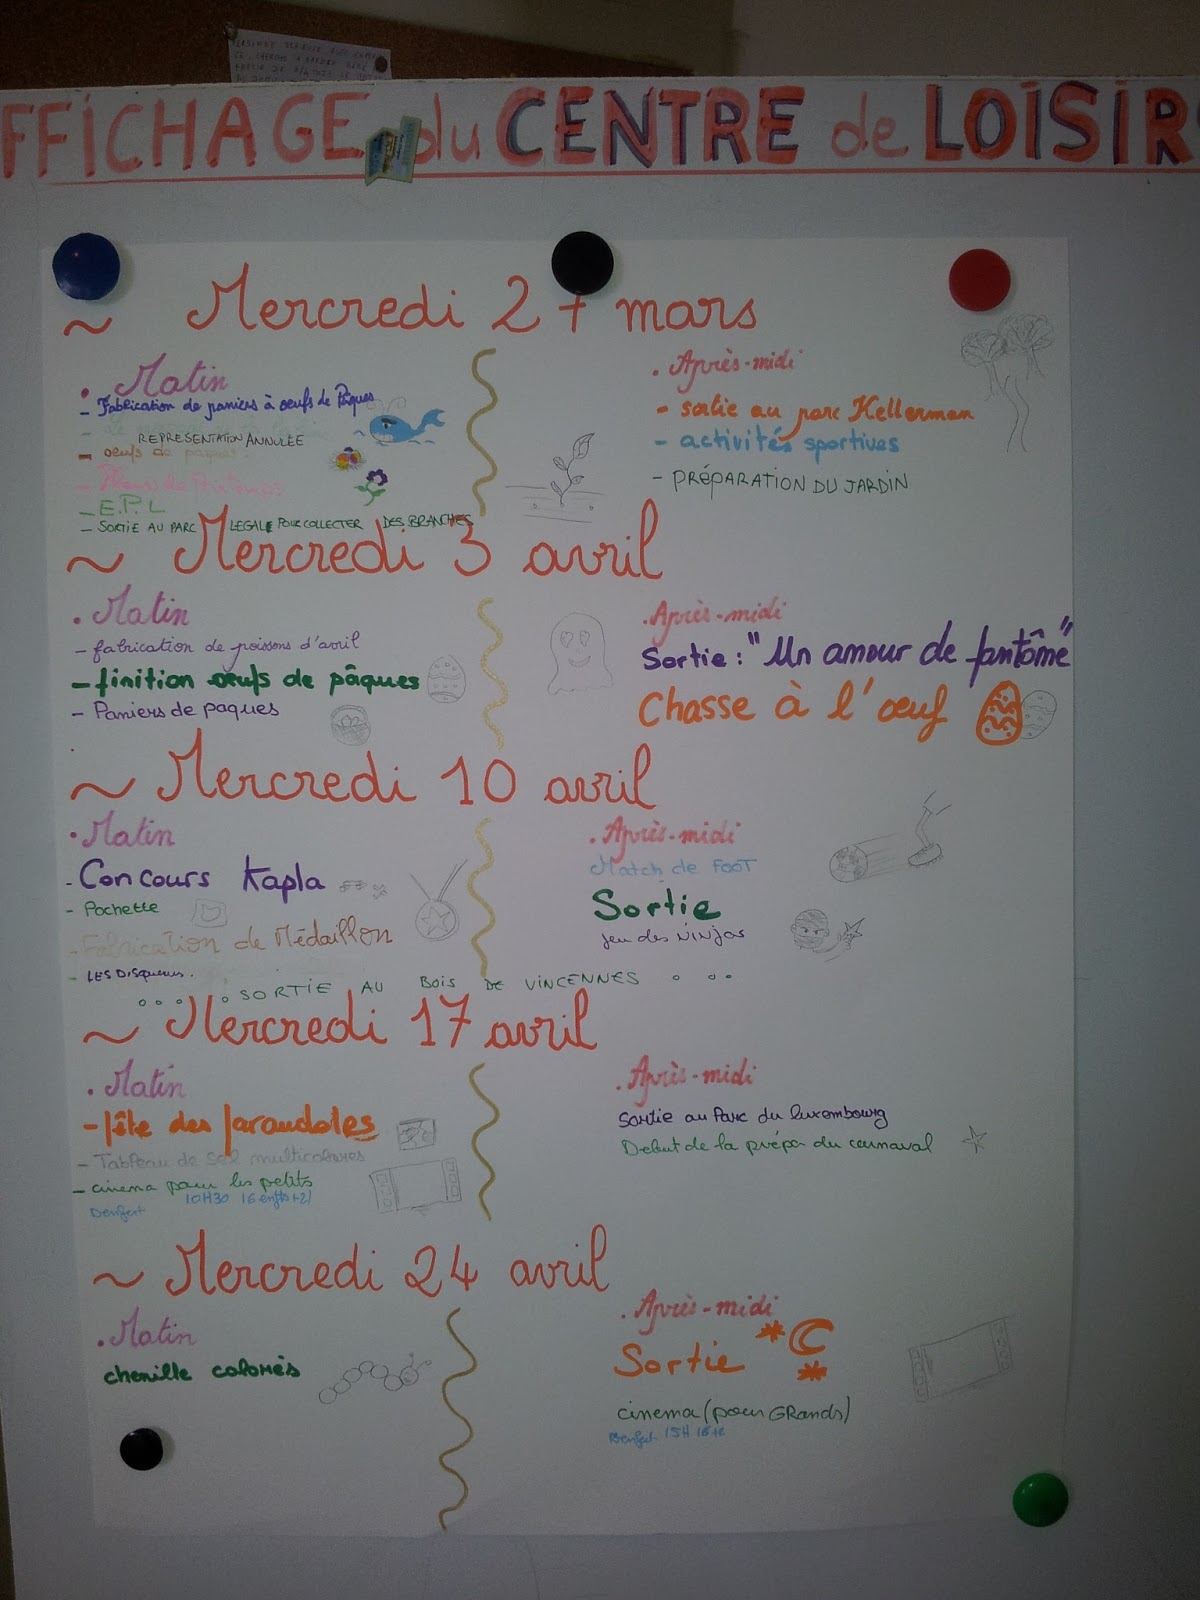 FFICHAGE du CENTRE de LOISIR
~ Mercredi 27 mars
. Matin
- Fabrication de paniers à oeufs de Pâques
REPRESENTATION ANNULÉE
- oeufs de paques
- E.P.L
- SORTIE AU PARC LEGALE POUR COLLECTER DES BRANCHES
. Après-midi
- sortie au parc Kellerman
- activités sportives
- PRÉPARATION DU JARDIN
~ Mercredi 3 avril
. Matin
- fabrication de poissons d'avril
- finition oeufs de pâques
- Paniers de paques
. Après-midi
Sortie : "Un amour de fantôme"
Chasse à l'œuf
~ Mercredi 10 avril
. Matin
- Concours Kapla
- Pochette
- Fabrication de Médaillon
- LES DISqueurs.
. Après-midi
Match de FOOT
Sortie
jeu des NiNjas
SORTIE AU BOIS DE VINCENNES
~ Mercredi 17 avril
. Matin
- fête des farandoles
- Tableau de sel multicolores
- cinema pour les petits
Denfert 10H30 16 enfts+2)
. Après-midi
Sortie au Parc du luxembourg
Debut de la prépa du carnaval
~ Mercredi 24 avril
. Matin
chenille colorés
. Après-midi
Sortie
cinema (pour GRands)
Denfert 15H